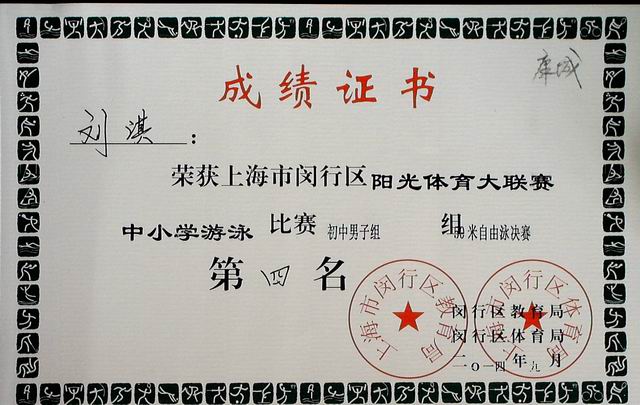 成绩证书
康城
刘淇：
荣获上海市闵行区阳光体育大联赛
中小学游泳比赛初中男子组 组50米自由泳决赛
第四名
上海市闵行区教育局
上海市闵行区体育局
闵行区教育局
闵行区体育局
二〇一四年九月